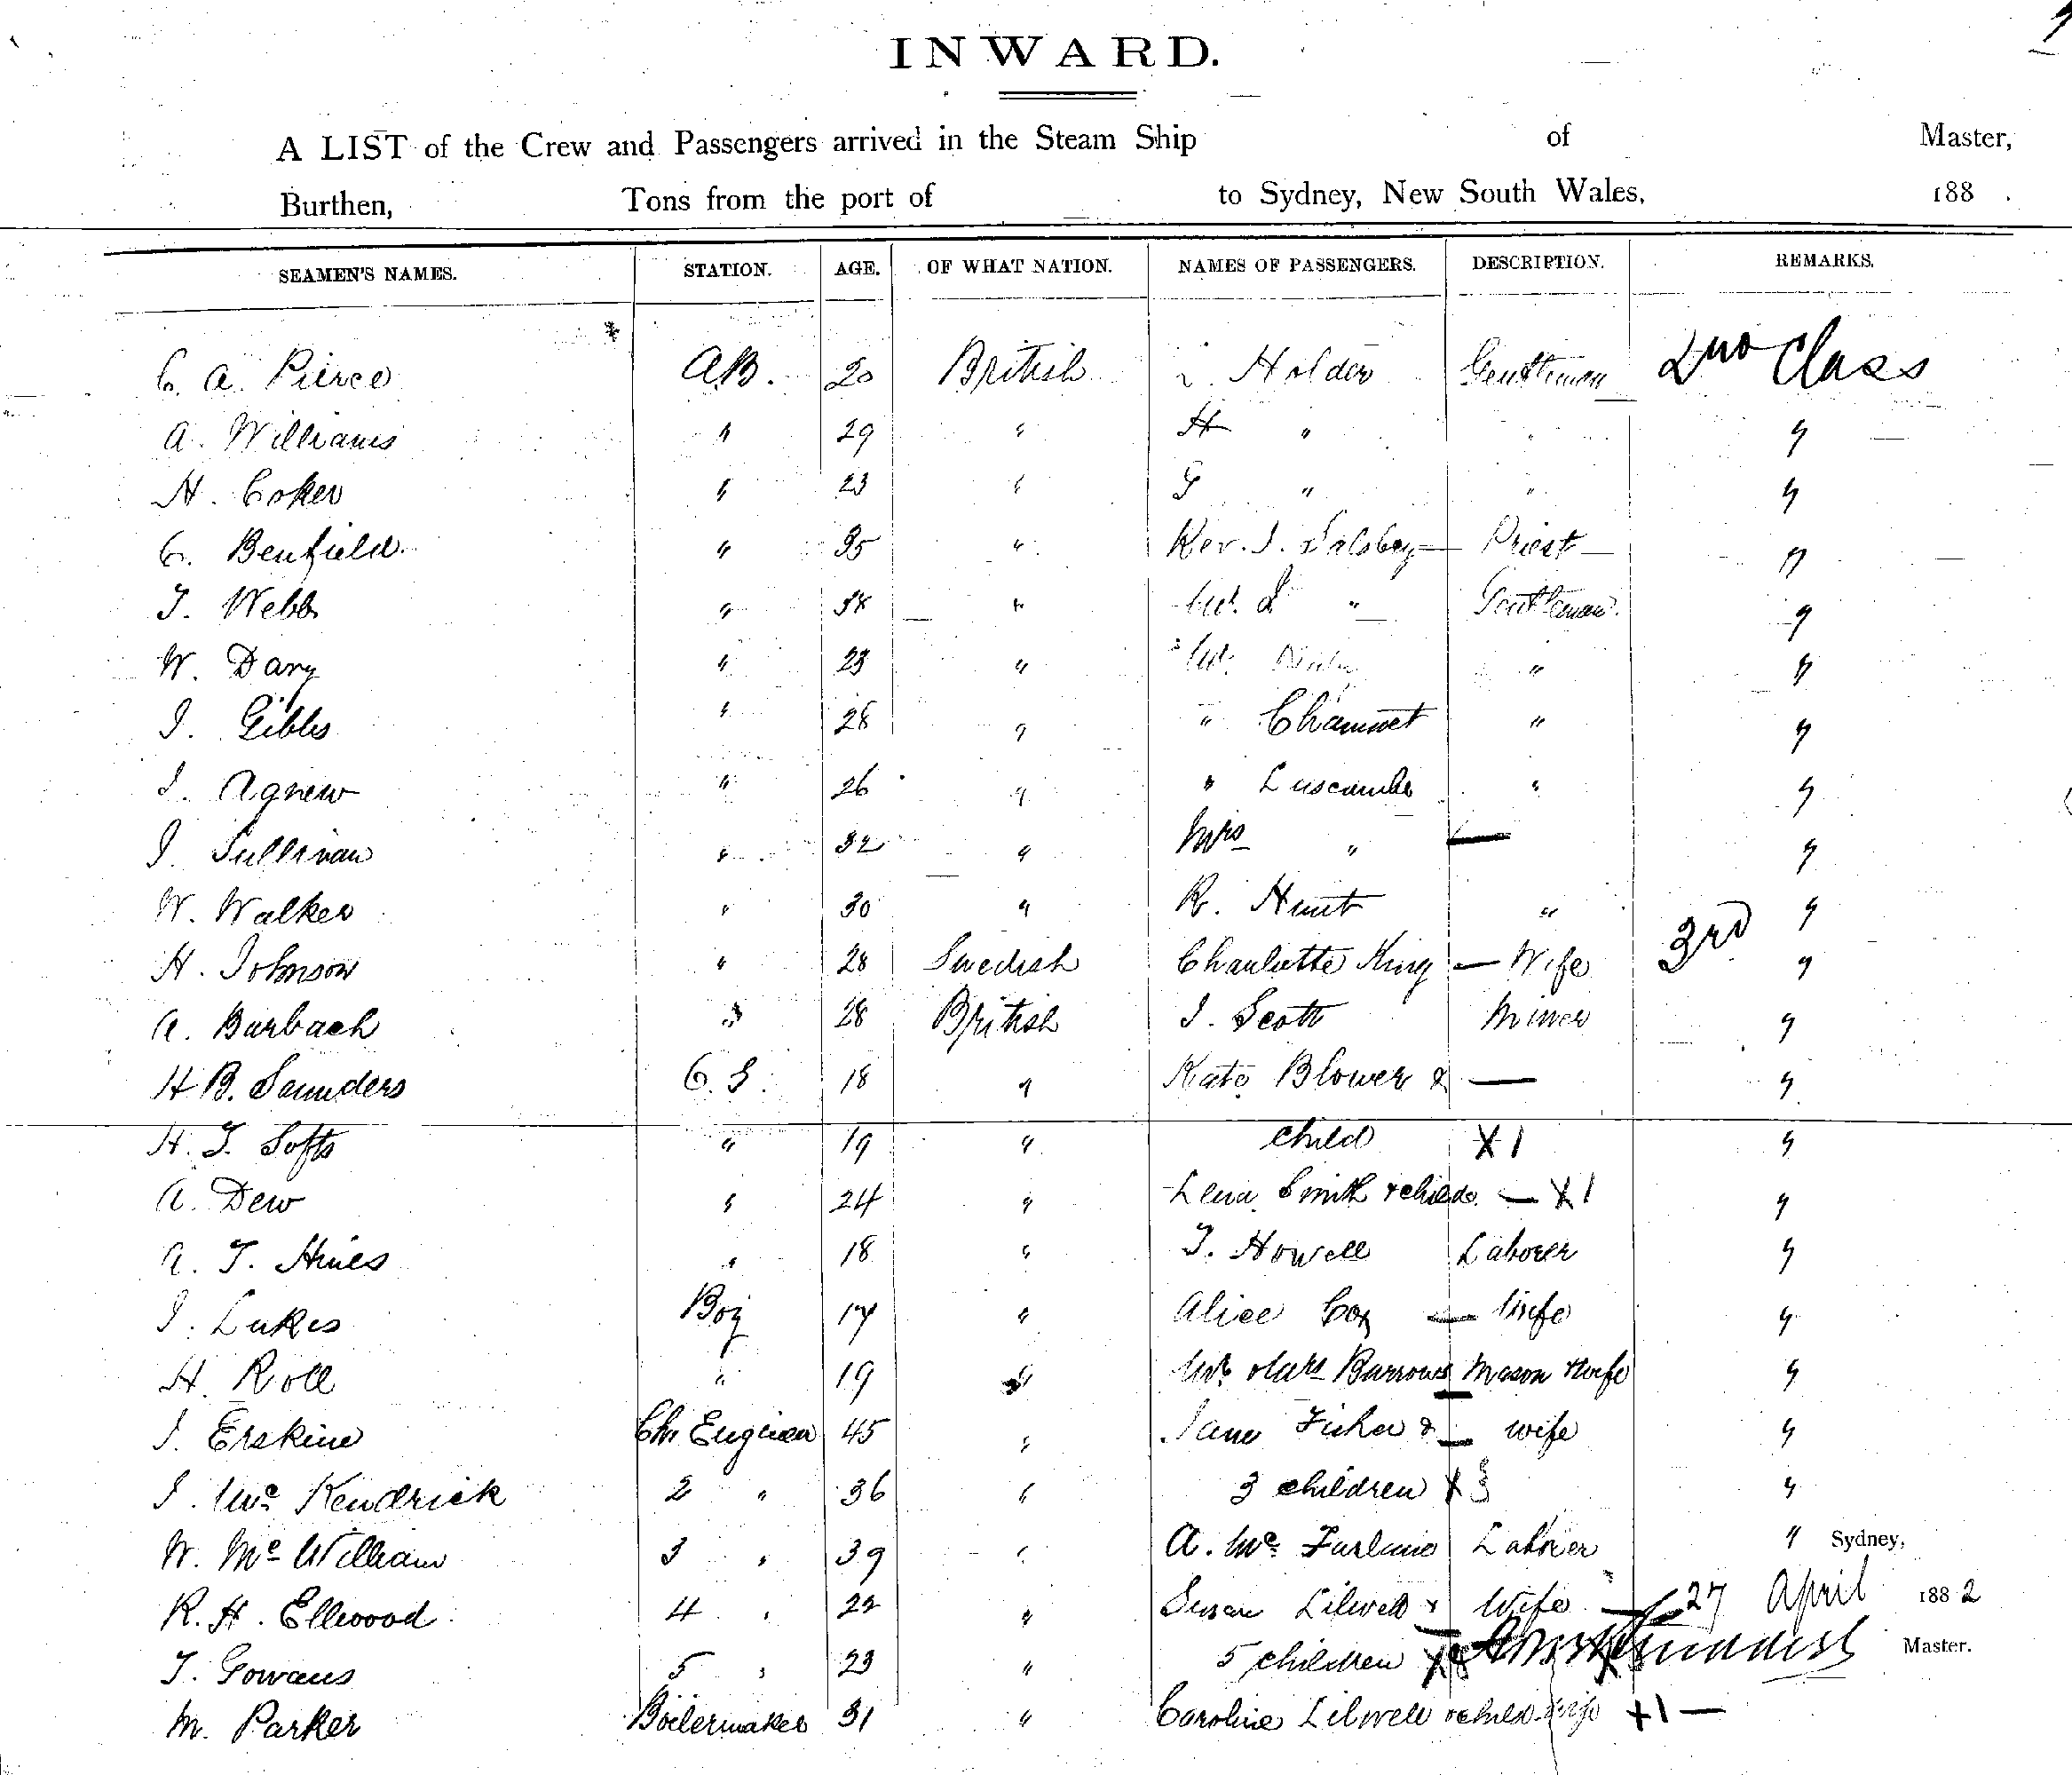 INWARD.
A LIST of the Crew and Passengers arrived in the Steam Ship of Master,
Burthen, Tons from the port of to Sydney, New South Wales, 188 .
SEAMEN'S NAMES. STATION. AGE. OF WHAT NATION. NAMES OF PASSENGERS. DESCRIPTION. REMARKS.
C. A. Pierce AB. 20 British Holder Gentleman 2nd Class
A. Williams " 29 " H " " "
H. Coker " 23 " G " " "
C. Benfield " 35 " Rev. J. Priest "
T. Webb " 38 " L " Gentleman "
W. Davy " 23 " " "
J. Gibbs " 28 " " " "
J. Agnew " 26 " " Luscombe " "
J. Sullivan " 32 " Mrs " — "
W. Walker " 30 " R. Hunt " "
H. Johnson " 28 Swedish Charlotte King — Wife 3rd "
A. Burbach " 28 British J. Scott Miner "
H B. Saunders O.S. 18 " Kate Blower & — "
H. T. Softs " 19 " child X 1 "
A. Dew " 24 " Lena Smith & child — X 1 "
A. T. Hines " 18 " T. Howell Laborer "
J. Lukes Boy 17 " Alice Cox — Wife "
H. Roll " 19 " Mr & Mrs Burrows Mason & wife "
J. Erskine Ch. Engineer 45 " Jane Fisher & — wife "
J. Mc Kendrick 2 " 36 " 3 children X 3 "
W. Mc William 3 " 39 " A. Mc Farlane Laborer " Sydney,
R. H. Ellwood 4 " 22 " Susan Lilwell & Wife — 27 April 1882
T. Gowans 5 " 23 " 5 children X Master.
M. Parker Boilermaker 31 " Caroline Lilwell & child wife + 1 —